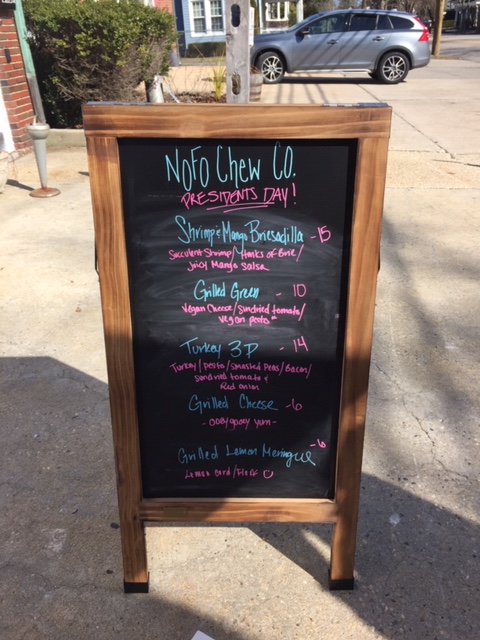 NOFO CHEW CO.
PRESIDENTS DAY!
Shrimp & Mango Briesadilla - 15
Succulent Shrimp/Hunks of Brie/
Juicy Mango Salsa
Grilled Green - 10
Vegan Cheese/Sundried tomato/
vegan pesto
Turkey 3P - 14
Turkey/pesto/smashed peas/Bacon/
sundried tomato &
Red onion
Grilled Cheese - 6
- ooey gooey yum -
Grilled Lemon Meringue - 6
Lemon curd/Fluff